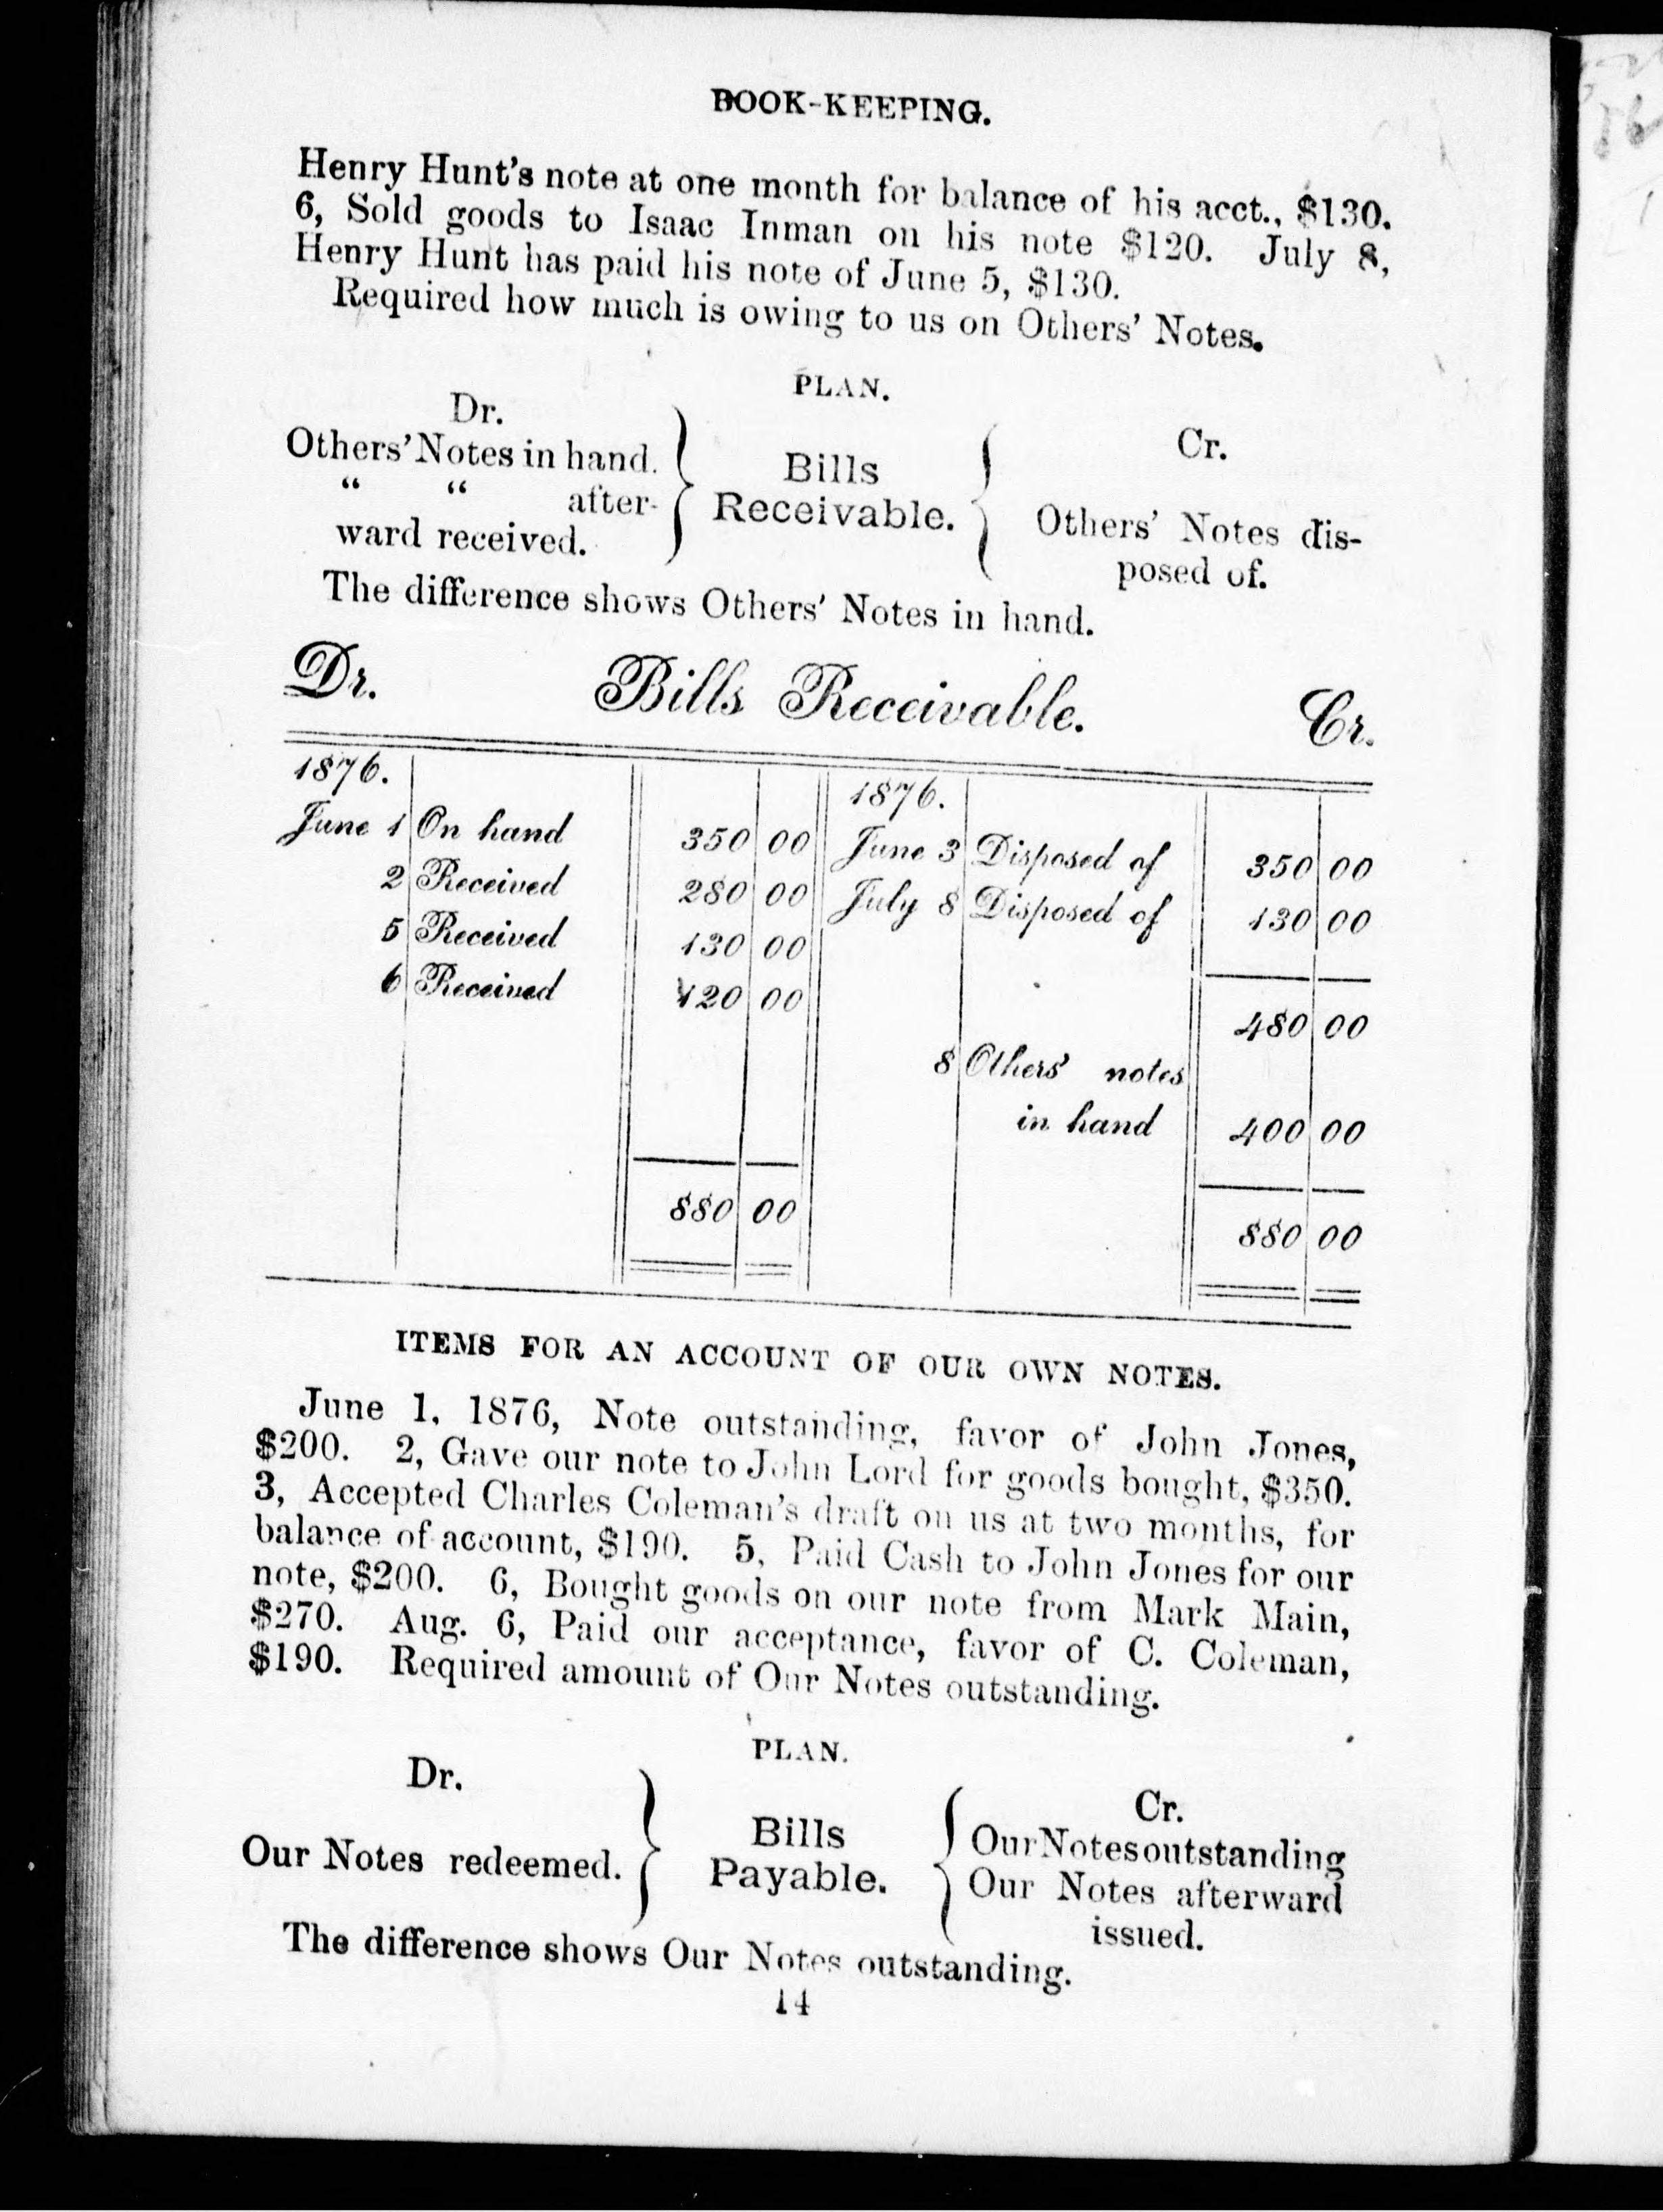 BOOK-KEEPING.
Henry Hunt's note at one month for balance of his acct., $130.
6, Sold goods to Isaac Inman on his note $120. July 8,
Henry Hunt has paid his note of June 5, $130.
Required how much is owing to us on Others' Notes.
PLAN.
Dr.
Others' Notes in hand.
“ “ after-
ward received.
Bills
Receivable.
Cr.
Others' Notes dis-
posed of.
The difference shows Others' Notes in hand.
Dr. Bills Receivable. Cr.
1876. 1876.
June 1 On hand 350 00 June 3 Disposed of 350 00
2 Received 280 00 July 8 Disposed of 130 00
5 Received 130 00
6 Received 120 00 480 00
8 Others' notes
in hand 400 00
880 00 880 00
ITEMS FOR AN ACCOUNT OF OUR OWN NOTES.
June 1, 1876, Note outstanding, favor of John Jones,
$200. 2, Gave our note to John Lord for goods bought, $350.
3, Accepted Charles Coleman's draft on us at two months, for
balance of account, $190. 5, Paid Cash to John Jones for our
note, $200. 6, Bought goods on our note from Mark Main,
$270. Aug. 6, Paid our acceptance, favor of C. Coleman,
$190. Required amount of Our Notes outstanding.
PLAN.
Dr.
Our Notes redeemed.
Bills
Payable.
Cr.
Our Notes outstanding
Our Notes afterward
issued.
The difference shows Our Notes outstanding.
14